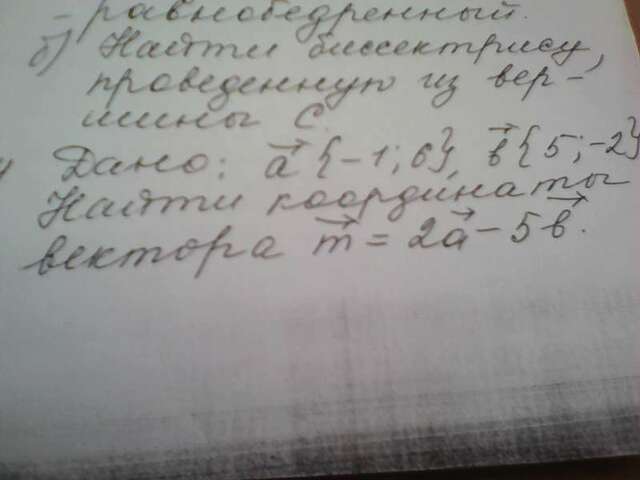 равнобедренный.
б) Найти биссектрису,
проведенную из вер-
шины С.
Дано: a⃗ {-1; 6}, b⃗ {5; -2}
Найти координаты
вектора m⃗ = 2a⃗ - 5b⃗.